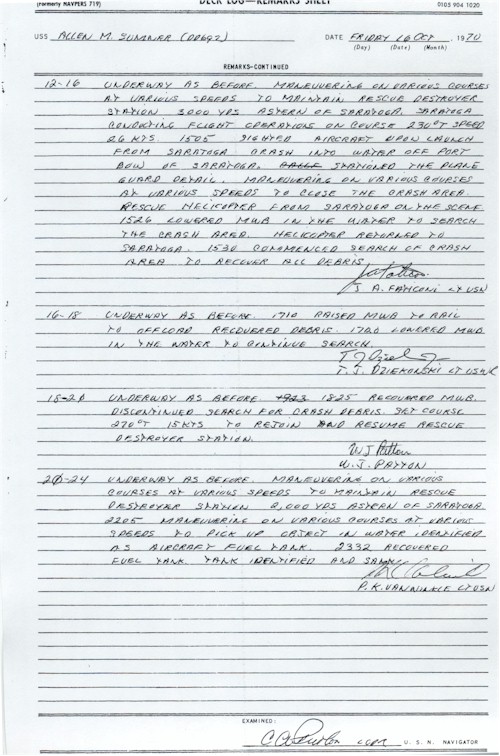 (Formerly NAVPERS 719)
DECK LOG—REMARKS SHEET
0105 904 1020
USS ALLEN M. SUMNER (DD692) DATE FRIDAY 16 OCT, 1970
(Day) (Date) (Month)
REMARKS-CONTINUED
12-16 UNDERWAY AS BEFORE. MANEUVERING ON VARIOUS COURSES
AT VARIOUS SPEEDS TO MAINTAIN RESCUE DESTROYER
STATION 3000 YDS ASTERN OF SARATOGA. SARATOGA
CONDUCTING FLIGHT OPERATIONS ON COURSE 230°T SPEED
26 KTS. 1505 SIGHTED AIRCRAFT UPON LAUNCH
FROM SARATOGA CRASH INTO WATER OFF PORT
BOW OF SARATOGA. STATIONED THE PLANE
GUARD DETAIL. MANEUVERING ON VARIOUS COURSES
AT VARIOUS SPEEDS TO CLOSE THE CRASH AREA.
RESCUE HELICOPTER FROM SARATOGA ON THE SCENE.
1526 LOWERED MWB IN THE WATER TO SEARCH
THE CRASH AREA. HELICOPTER RETURNED TO
SARATOGA. 1530 COMMENCED SEARCH OF CRASH
AREA TO RECOVER ALL DEBRIS.
J A. FALCONI LT USN
16-18 UNDERWAY AS BEFORE. 1710 RAISED MWB TO RAIL
TO OFFLOAD RECOVERED DEBRIS. 1720 LOWERED MWB
IN THE WATER TO CONTINUE SEARCH.
T. J. DZIEKONSKI LT USNR
18-20 UNDERWAY AS BEFORE. 1823 1825 RECOVERED MWB.
DISCONTINUED SEARCH FOR CRASH DEBRIS. SET COURSE
270°T 15KTS TO REJOIN AND RESUME RESCUE
DESTROYER STATION.
WJ Patton
W. J. PATTON
20-24 UNDERWAY AS BEFORE. MANEUVERING ON VARIOUS
COURSES AT VARIOUS SPEEDS TO MAINTAIN RESCUE
DESTROYER STATION 2,000 YDS ASTERN OF SARATOGA.
2205 MANEUVERING ON VARIOUS COURSES AT VARIOUS
SPEEDS TO PICK UP OBJECT IN WATER IDENTIFIED
AS AIRCRAFT FUEL TANK. 2332 RECOVERED
FUEL TANK. TANK IDENTIFIED AND
P. K. VANWINKLE LT USN
EXAMINED:
LCDR U. S. N. NAVIGATOR